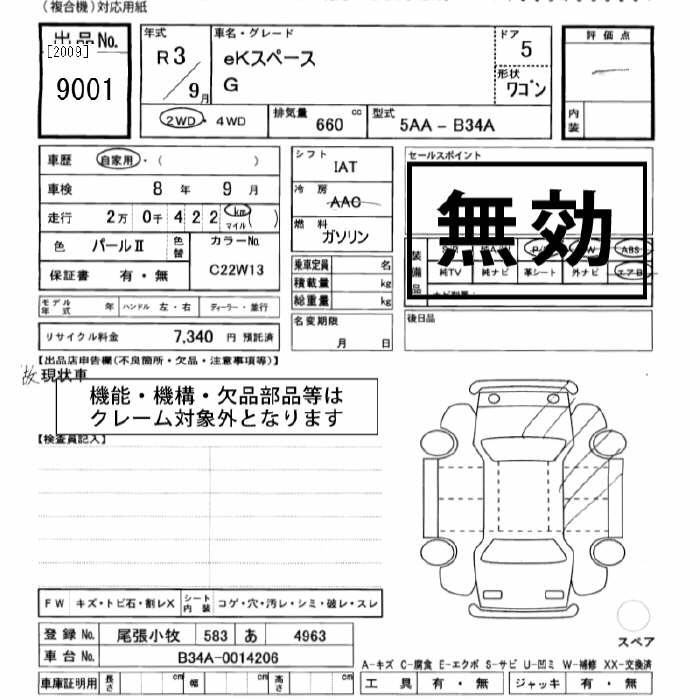 (複合機)対応用紙
出品No.
[2009]
9001
年式 R3/9月
車名・グレード
eKスペース
G
ドア 5
形状 ワゴン
評価点
内装
2WD・4WD
排気量 660 cc
型式 5AA-B34A
車歴 自家用・( )
車検 8年 9月
走行 2万 0千 4 2 2 km マイル ( )
色 パールⅡ 色替
カラーNo. C22W13
保証書 有・無
シフト IAT
冷房 AAC
燃料 ガソリン
乗車定員 名
積載量 kg
総重量 kg
セールスポイント
無効
装備品
ABS
純TV 純ナビ 革シート 外ナビ エアB
モデル年式 年 ハンドル 左・右 ディーラー・並行
リサイクル料金 7,340 円 預託済
名変期限 月 日
後日品
【出品店申告欄(不良箇所・欠品・注意事項等)】
故 現状車
機能・機構・欠品部品等は
クレーム対象外となります
【検査員記入】
FW キズ・トビ石・割レX シート内装 コゲ・穴・汚レ・シミ・破レ・スレ
登録No. 尾張小牧 583 あ 4963
車台No. B34A-0014206
スペア
A-キズ C-腐食 E-エクボ S-サビ U-凹ミ W-補修 XX-交換済
車庫証明用 長さ cm 幅 cm 高さ cm
工具 有・無 ジャッキ 有・無